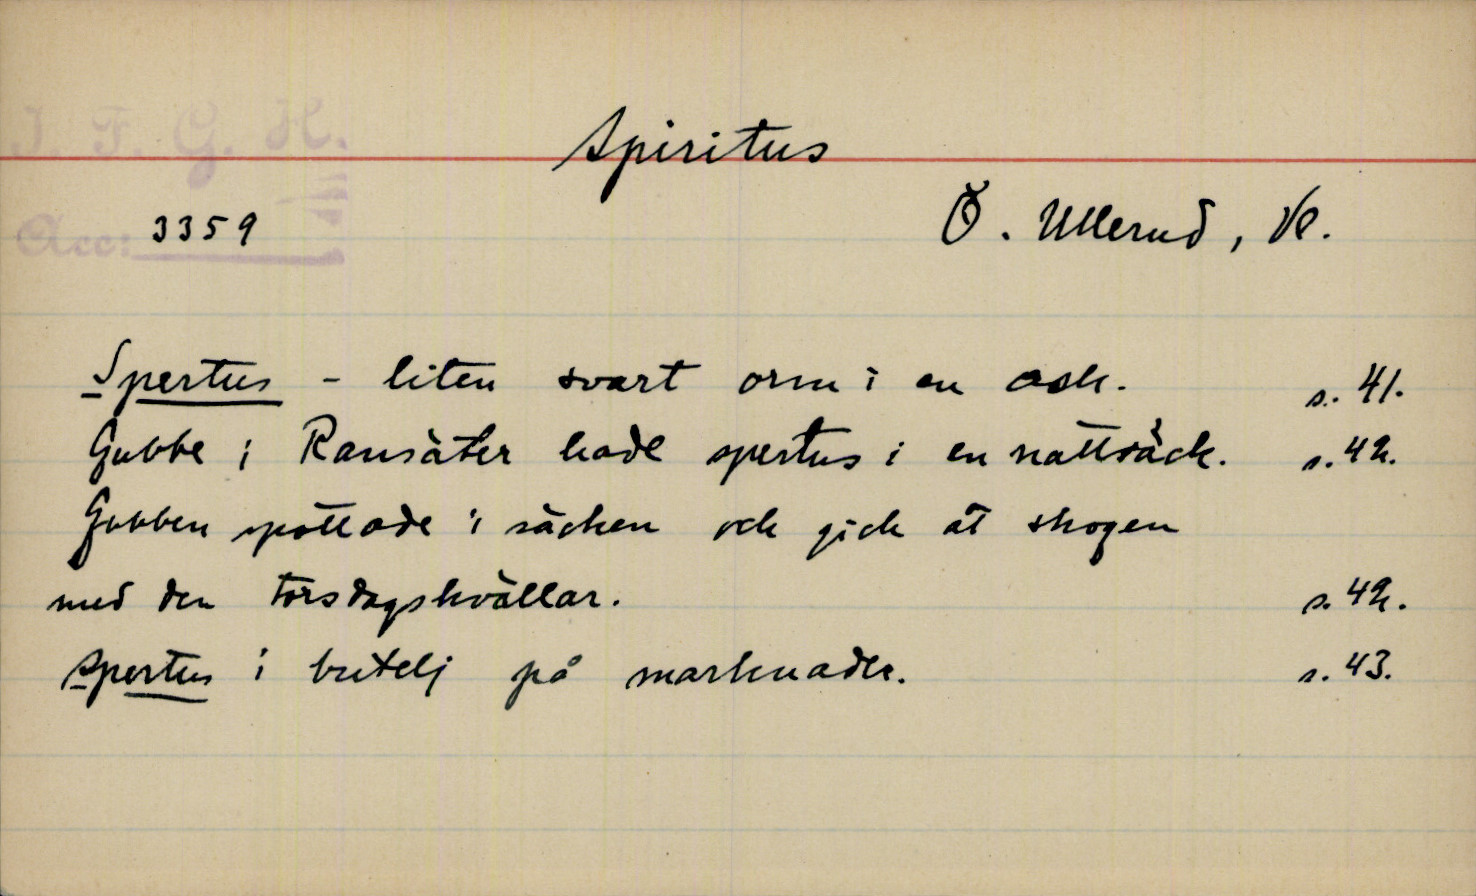 I. F. G. H.
Spiritus
Acc: 3359
Ö. Ullerud, Vl.
Spertus - liten svart orm i en ask. s. 41.
Gubbe i Ransäter hade spertus i en nattsäck. s. 42.
Gubben spottade i säcken och gick åt skogen
med den torsdagskvällar. s. 42.
Spertus i butelj på marknader. s. 43.